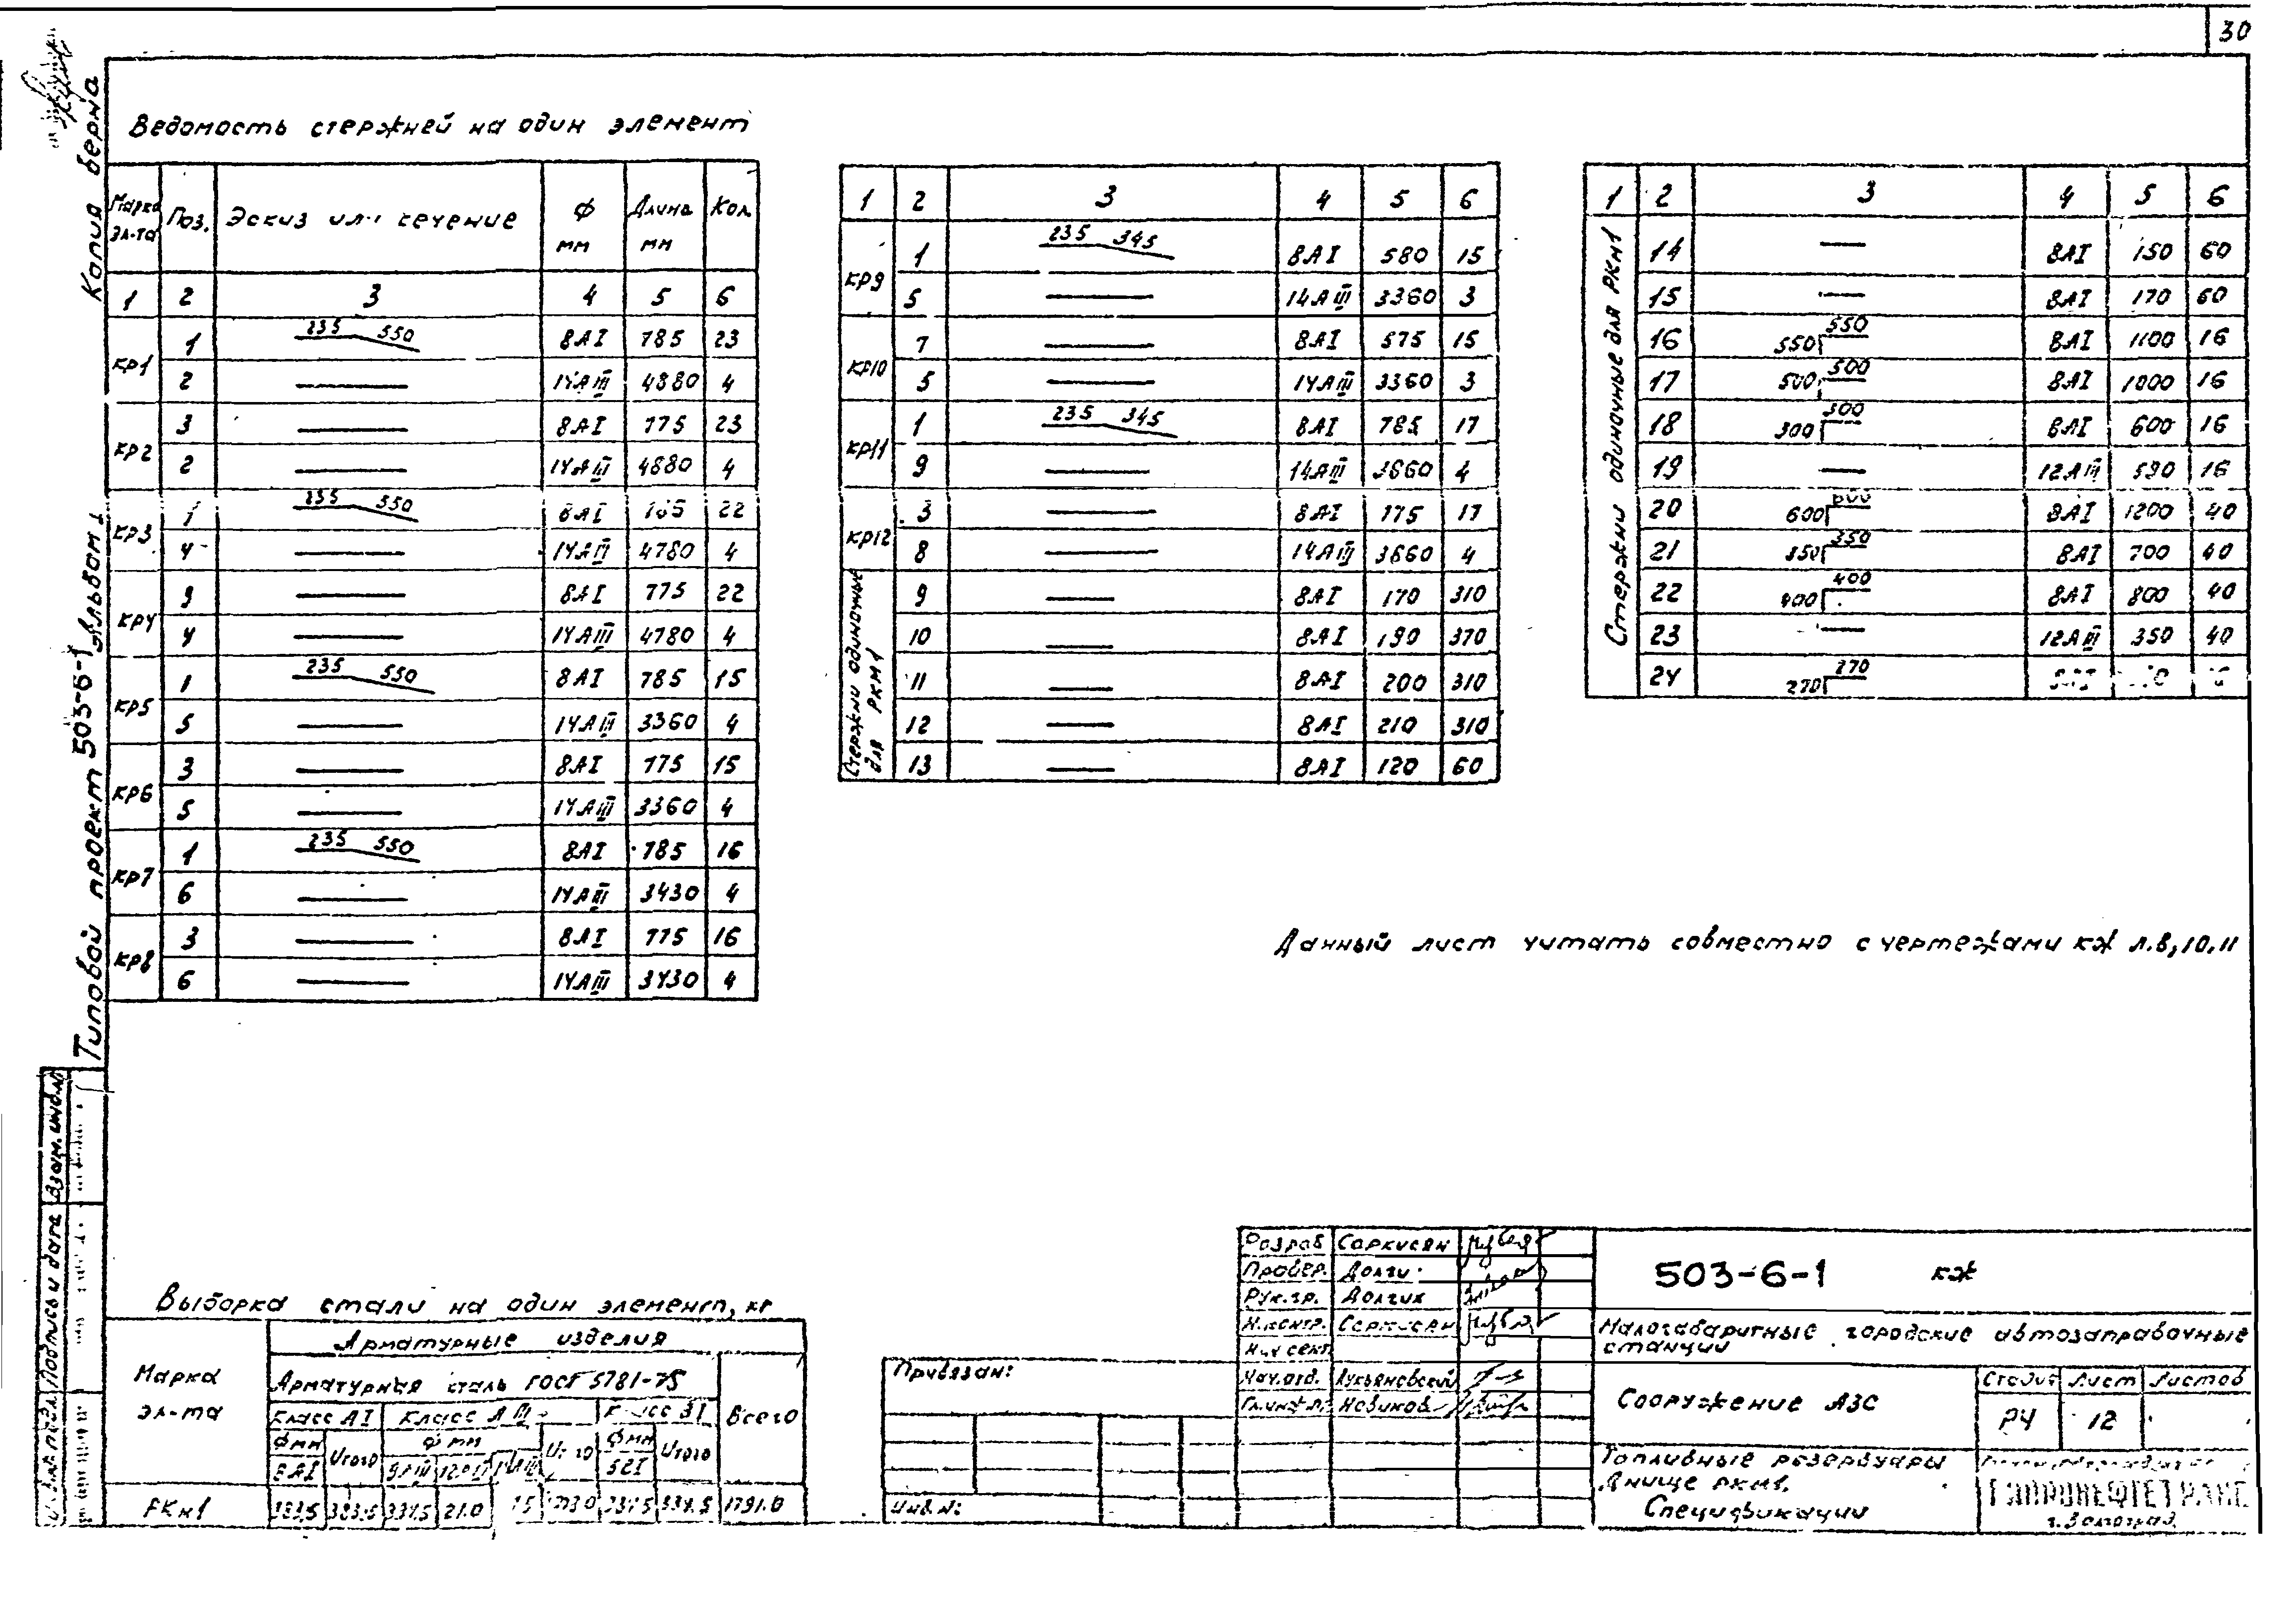 30
Копия верна
Типовой проект 503-6-1 Альбом 1
Ведомость стержней на один элемент
Марка эл-та Поз. Эскиз или сечение ф мм Длина мм Кол.
1 2 3 4 5 6
КР1 1 235 550 8АI 785 23
2 14АIII 4880 4
КР2 3 8АI 775 23
2 14АIII 4880 4
КР3 1 235 550 8АI 22
4 14АIII 4780 4
КР4 8АI 775 22
4 14АIII 4780 4
КР5 1 235 550 8АI 785 15
5 14АIII 3360 4
КР6 3 8АI 775 15
5 14АIII 3360 4
КР7 1 235 550 8АI 785 16
6 14АIII 3430 4
КР8 3 8АI 775 16
6 14АIII 3430 4
1 2 3 4 5 6
КР9 1 235 345 8АI 580 15
5 14АIII 3360 3
КР10 7 8АI 575 15
5 14АIII 3360 3
КР11 1 235 345 8АI 785 17
9 14АIII 3660 4
КР12 3 8АI 775 17
8 14АIII 3660 4
Стержни одиночные для РКМ1
9 8АI 170 310
10 8АI 190 370
11 8АI 200 310
12 8АI 210 310
13 8АI 120 60
1 2 3 4 5 6
Стержни одиночные для РКМ1
14 8АI 150 60
15 8АI 170 60
16 550 550 8АI 1100 16
17 500 500 8АI 1000 16
18 300 300 8АI 600 16
19 12АIII 590 16
20 600 600 8АI 1200 40
21 350 350 8АI 700 40
22 400 400 8АI 800 40
23 12АIII 350 40
24 270 270
Данный лист читать совместно с чертежами КЖ л.8,10,11
Выборка стали на один элемент, кг
Марка эл-та
Арматурные изделия
Арматурная сталь ГОСТ 5781-75
Всего
Класс АI Класс АIII
фмм Итого фмм фмм Итого
8АI
РКМ1 21.0 1791.0
Привязан:
Инв.N:
Разраб Саркисян
Провер. Долги
Рук.гр. Долгих
Н.контр. Саркисян
Нач сект.
Нач.отд. Лукьяновский
Новиков
503-6-1 КЖ
Малогабаритные городские автозаправочные
станции
Сооружение АЗС
Стадия Лист Листов
РЧ 12
Топливные резервуары
Днище РКМ1.
Спецификации
ГИПРОНЕФТЕТРАНС
г. Волгоград
Взам. инв.N
Подпись и дата